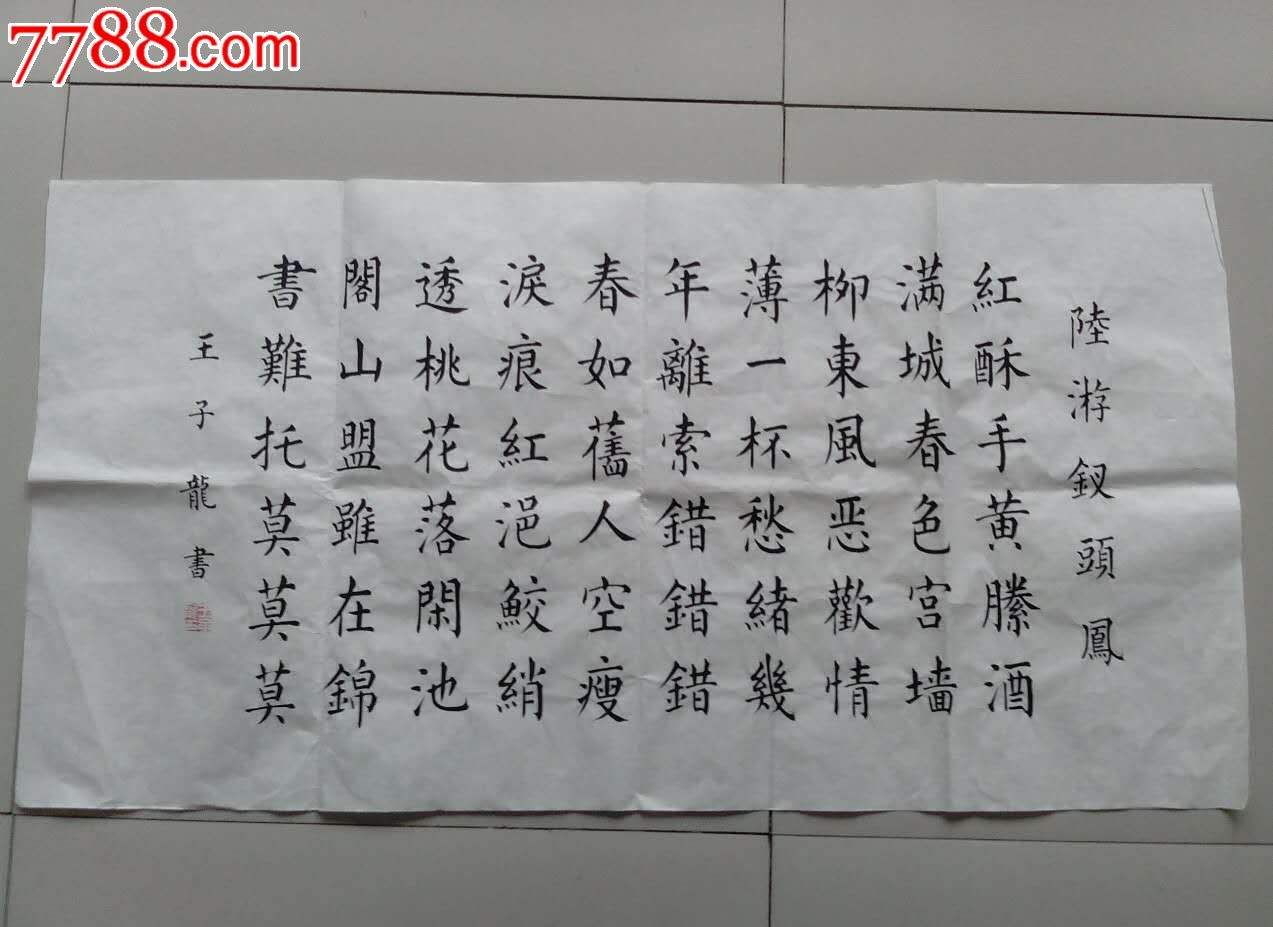 7788.com
陸游釵頭鳳
紅酥手黄縢酒
满城春色宫墙
柳東風恶歡情
薄一杯愁緒幾
年離索錯錯錯
春如舊人空瘦
淚痕紅浥鮫綃
透桃花落閑池
閣山盟雖在錦
書難托莫莫莫
王子龍書